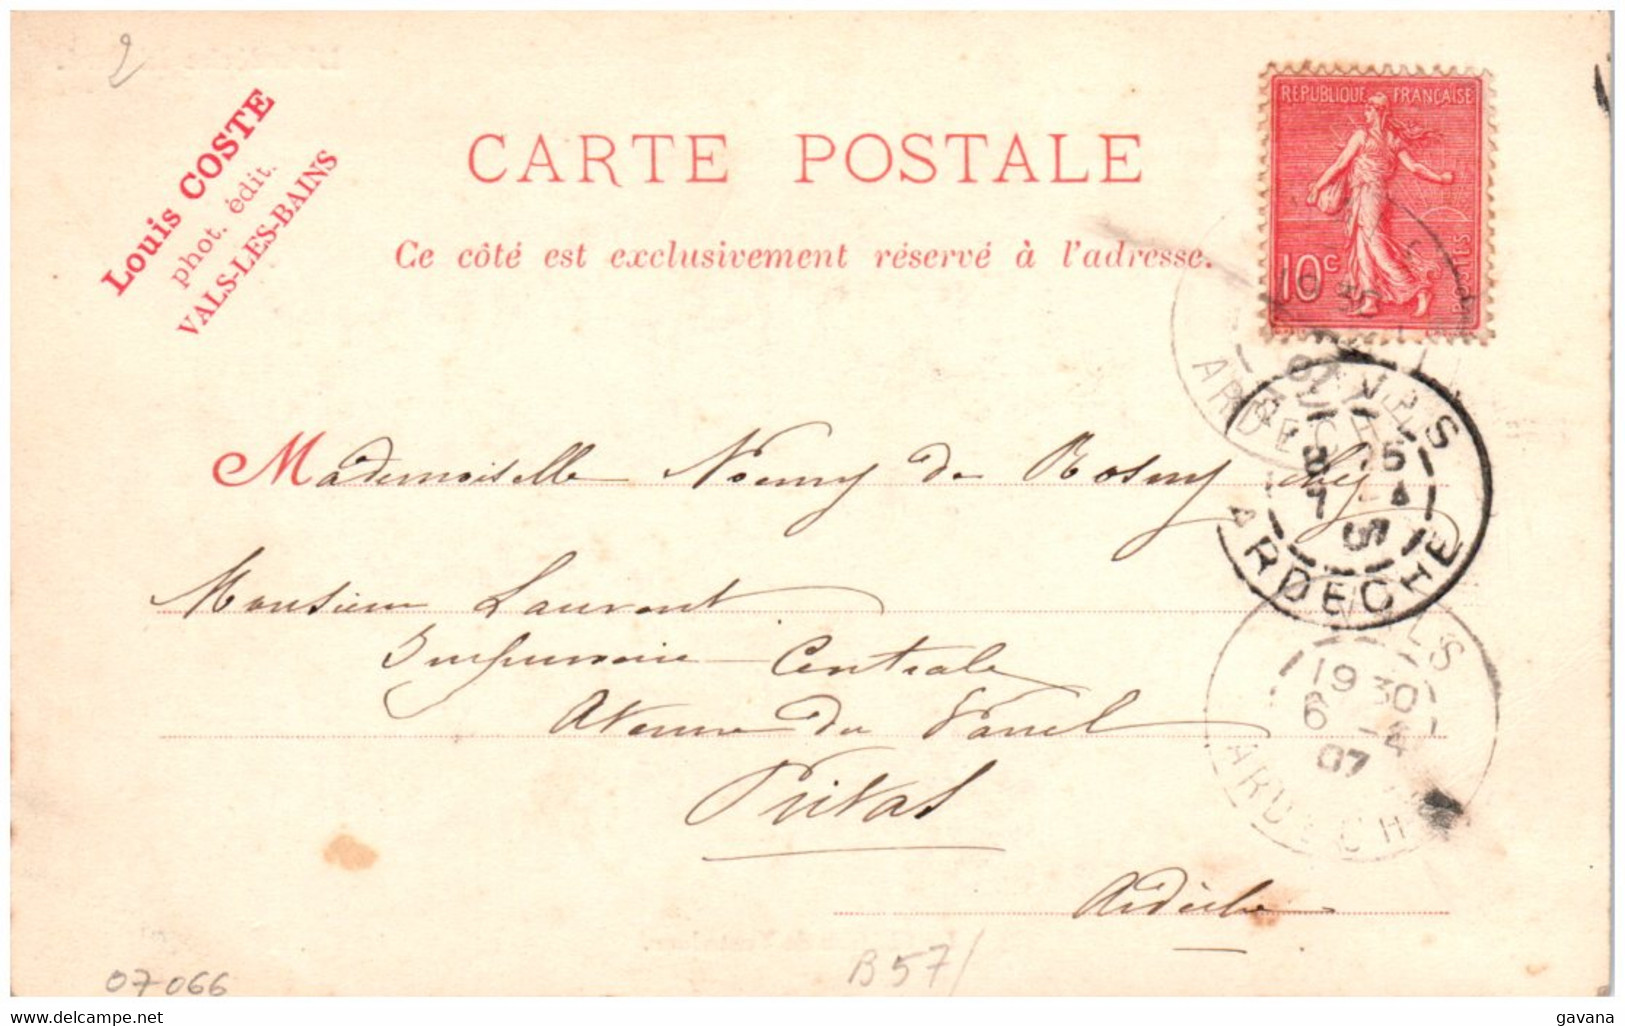 2
Louis COSTE
phot. édit.
VALS-LES-BAINS
CARTE POSTALE
Ce côté est exclusivement réservé à l'adresse.
RÉPUBLIQUE FRANÇAISE
10c
POSTES
ARDECHE
8 15
7 -4
ARDECHE
Mademoiselle Noemy de Rosny chez
Monsieur Laurent
Imprimerie Centrale
Avenue du Vanel
Privas
Ardèche
VALS
19 30
6 -4
07
ARDECH
07066
B57/
delcampe.net
gavana